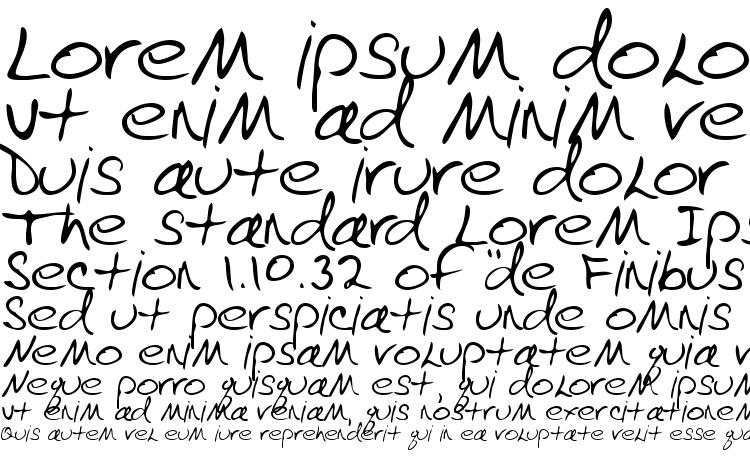 Lorem ipsum dolo
ut enim ad minim ve
Duis aute irure dolor
The standard Lorem Ips
Section 1.10.32 of "de Finibus
Sed ut perspiciatis unde omnis
Nemo enim ipsam voluptatem quia v
Neque porro quisquam est, qui dolorem ipsum
ut enim ad minima veniam, quis nostrum exercitationem
Quis autem vel eum iure reprehenderit qui in ea voluptate velit esse qua